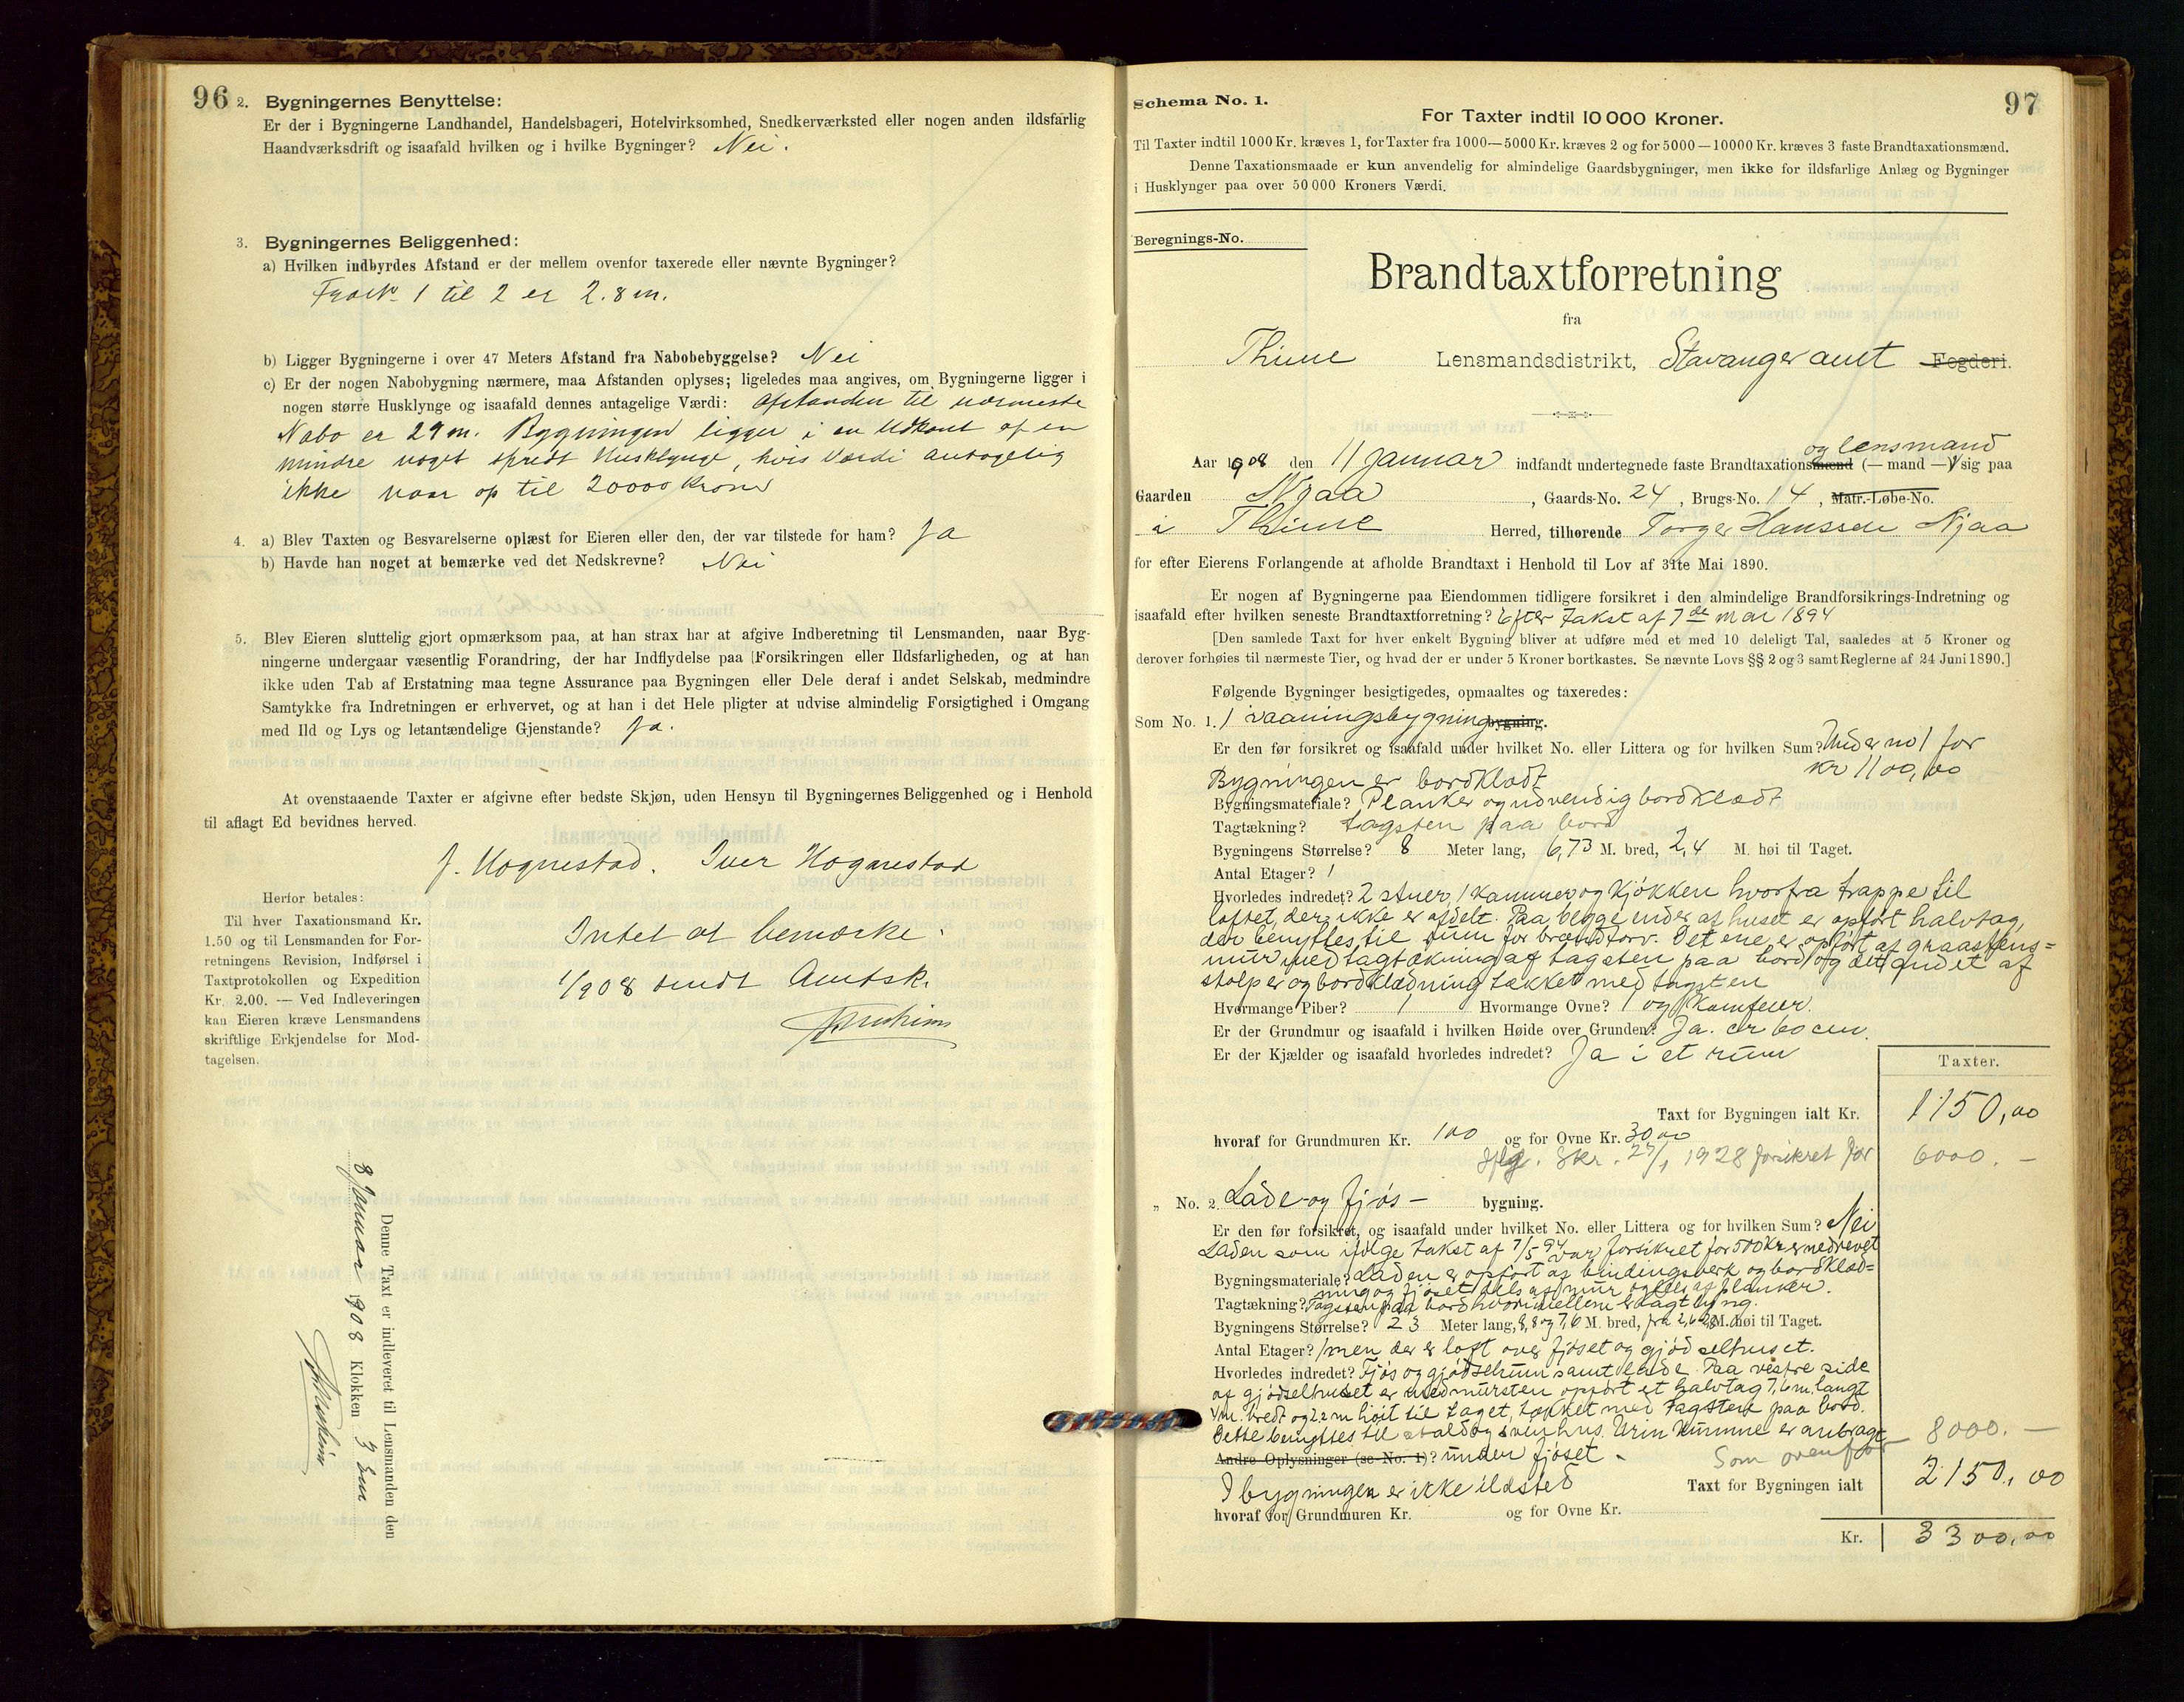 96
2. Bygningernes Benyttelse:
Er der i Bygningerne Landhandel, Handelsbageri, Hotelvirksomhed, Snedkerværksted eller nogen anden ildsfarlig
Haandværksdrift og isaafald hvilken og i hvilke Bygninger? Nei.
3. Bygningernes Beliggenhed:
a) Hvilken indbyrdes Afstand er der mellem ovenfor taxerede eller nævnte Bygninger?
1 til 2 er 2.8 m.
b) Ligger Bygningerne i over 47 Meters Afstand fra Nabobebyggelse? Nei
c) Er der nogen Nabobygning nærmere, maa Afstanden oplyses; ligeledes maa angives, om Bygningerne ligger i
nogen større Husklynge og isaafald dennes antagelige Værdi: Afstanden til nærmeste
Nabo er 29 m. Bygningen ligger i en Udkant af en
mindre noget spredt Husklynge, hvis Værdi antagelig
ikke naar op til 20000 Kroner
4. a) Blev Taxten og Besvarelserne oplæst for Eieren eller den, der var tilstede for ham? Ja
b) Havde han noget at bemærke ved det Nedskrevne? Nei
5. Blev Eieren sluttelig gjort opmærksom paa, at han strax har at afgive Indberetning til Lensmanden, naar Byg-
ningerne undergaar væsentlig Forandring, der har Indflydelse paa Forsikringen eller Ildsfarligheden, og at han
ikke uden Tab af Erstatning maa tegne Assurance paa Bygningen eller Dele deraf i andet Selskab, medmindre
Samtykke fra Indretningen er erhvervet, og at han i det Hele pligter at udvise almindelig Forsigtighed i Omgang
med Ild og Lys og letantændelige Gjenstande? Ja.
At ovenstaaende Taxter er afgivne efter bedste Skjøn, uden Hensyn til Bygningernes Beliggenhed og i Henhold
til aflagt Ed bevidnes herved.
J. Hognestad. Iver Hognestad
Herfor betales:
Til hver Taxationsmand Kr.
1.50 og til Lensmanden for For-
retningens Revision, Indførsel i
Taxtprotokollen og Expedition
Kr. 2.00. — Ved Indleveringen
kan Eieren kræve Lensmandens
skriftlige Erkjendelse for Mod-
tagelsen.
Intet at bemærke.
1/908 sendt Amtsk.
Denne Taxt er indleveret til Lensmanden den
8 Januar 1908 Klokken 3 Em
97
Schema No. 1.
For Taxter indtil 10 000 Kroner.
Til Taxter indtil 1000 Kr. kræves 1, for Taxter fra 1000—5000 Kr. kræves 2 og for 5000—10000 Kr. kræves 3 faste Brandtaxationsmænd.
Denne Taxationsmaade er kun anvendelig for almindelige Gaardsbygninger, men ikke for ildsfarlige Anlæg og Bygninger
i Husklynger paa over 50 000 Kroners Værdi.
Beregnings-No.
Brandtaxtforretning
fra
Thime Lensmandsdistrikt, Stavanger amt Fogderi.
og lensmand
Aar 1908 den 11 Januar indfandt undertegnede faste Brandtaxationsmænd (— mand —) sig paa
Gaarden Njaa, Gaards-No. 24, Brugs-No. 14, Matr.-Løbe-No.
i Thime Herred, tilhørende Torger Hanssen Njaa
for efter Eierens Forlangende at afholde Brandtaxt i Henhold til Lov af 31te Mai 1890.
Er nogen af Bygningerne paa Eiendommen tidligere forsikret i den almindelige Brandforsikrings-Indretning og
isaafald efter hvilken seneste Brandtaxtforretning? Efter Takst af 7de mai 1894
[Den samlede Taxt for hver enkelt Bygning bliver at udføre med et med 10 deleligt Tal, saaledes at 5 Kroner og
derover forhøies til nærmeste Tier, og hvad der er under 5 Kroner bortkastes. Se nævnte Lovs §§ 2 og 3 samt Reglerne af 24 Juni 1890.]
Følgende Bygninger besigtigedes, opmaaltes og taxeredes:
Som No. 1. 1 vaaningsbygning bygning.
Er den før forsikret og isaafald under hvilket No. eller Littera og for hvilken Sum? Under no 1 for
kr 1100,00
Bygningen er bordklædt
Bygningsmateriale? Planker og udvendig bordklædt
Tagtækning? tagsten paa bord
Bygningens Størrelse? 8 Meter lang, 6,73 M. bred, 2,4 M. høi til Taget.
Antal Etager? 1
Hvorledes indredet? 2 stuer, 1 kammer og kjøkken hvorfra trappe til
loftet, der ikke er afdelt. Paa begge ender af huset er opført halvtag,
der benyttes til rum for brændtorv. Det ene er opført af graastens=
mur med tagtækning af tagsten paa bord og det andet af
stolper og bordklædning tækket med tagsten
Hvormange Piber? 1 Hvormange Ovne? 1 og Komfeur.
Er der Grundmur og isaafald i hvilken Høide over Grunden? Ja. cr 60 cm.
Er der Kjælder og isaafald hvorledes indredet? Ja i et rum
Taxter.
Taxt for Bygningen ialt Kr. 1150,00
hvoraf for Grundmuren Kr. 100 og for Ovne Kr. 30,00
Ifølg. Skr. 27/1 1928 forsikret for 6000.—
„ No. 2. Lade og fjøs — bygning.
Er den før forsikret, og isaafald under hvilket No. eller Littera og for hvilken Sum? Nei
Laden som ifølge takst af 7/5 94 var forsikret for 500 kr er nedrevet
Bygningsmateriale? Laden er opført af bindingsverk og bordklæd=
ning og fjøset dels af mur og dels af planker.
Tagtækning? Tagsten paa bord hvorimellem er lagt lyng.
Bygningens Størrelse? 23 Meter lang, 8,8 og 7,6 M. bred, fra 2,6 M. høi til Taget.
Antal Etager? 1 men der er loft over fjøset og gjødselhuset.
Hvorledes indredet? Fjøs og gjødselrum samt lade. Paa vestre side
af gjødselhuset er med mursten opført et halvtag 7,6 m. langt
4 m. bredt og 2.2 m høit til taget, tækket med tagsten paa bord.
Dette benyttes til stald og svenhus. Urin kumme er anbragt
8000.—
Andre Oplysninger (se No. 1)? under fjøset. Som ovenfor
I bygningen er ikke ildsted Taxt for Bygningen ialt 2150,00
hvoraf for Grundmuren Kr. og for Ovne Kr.
Kr. 3300,00